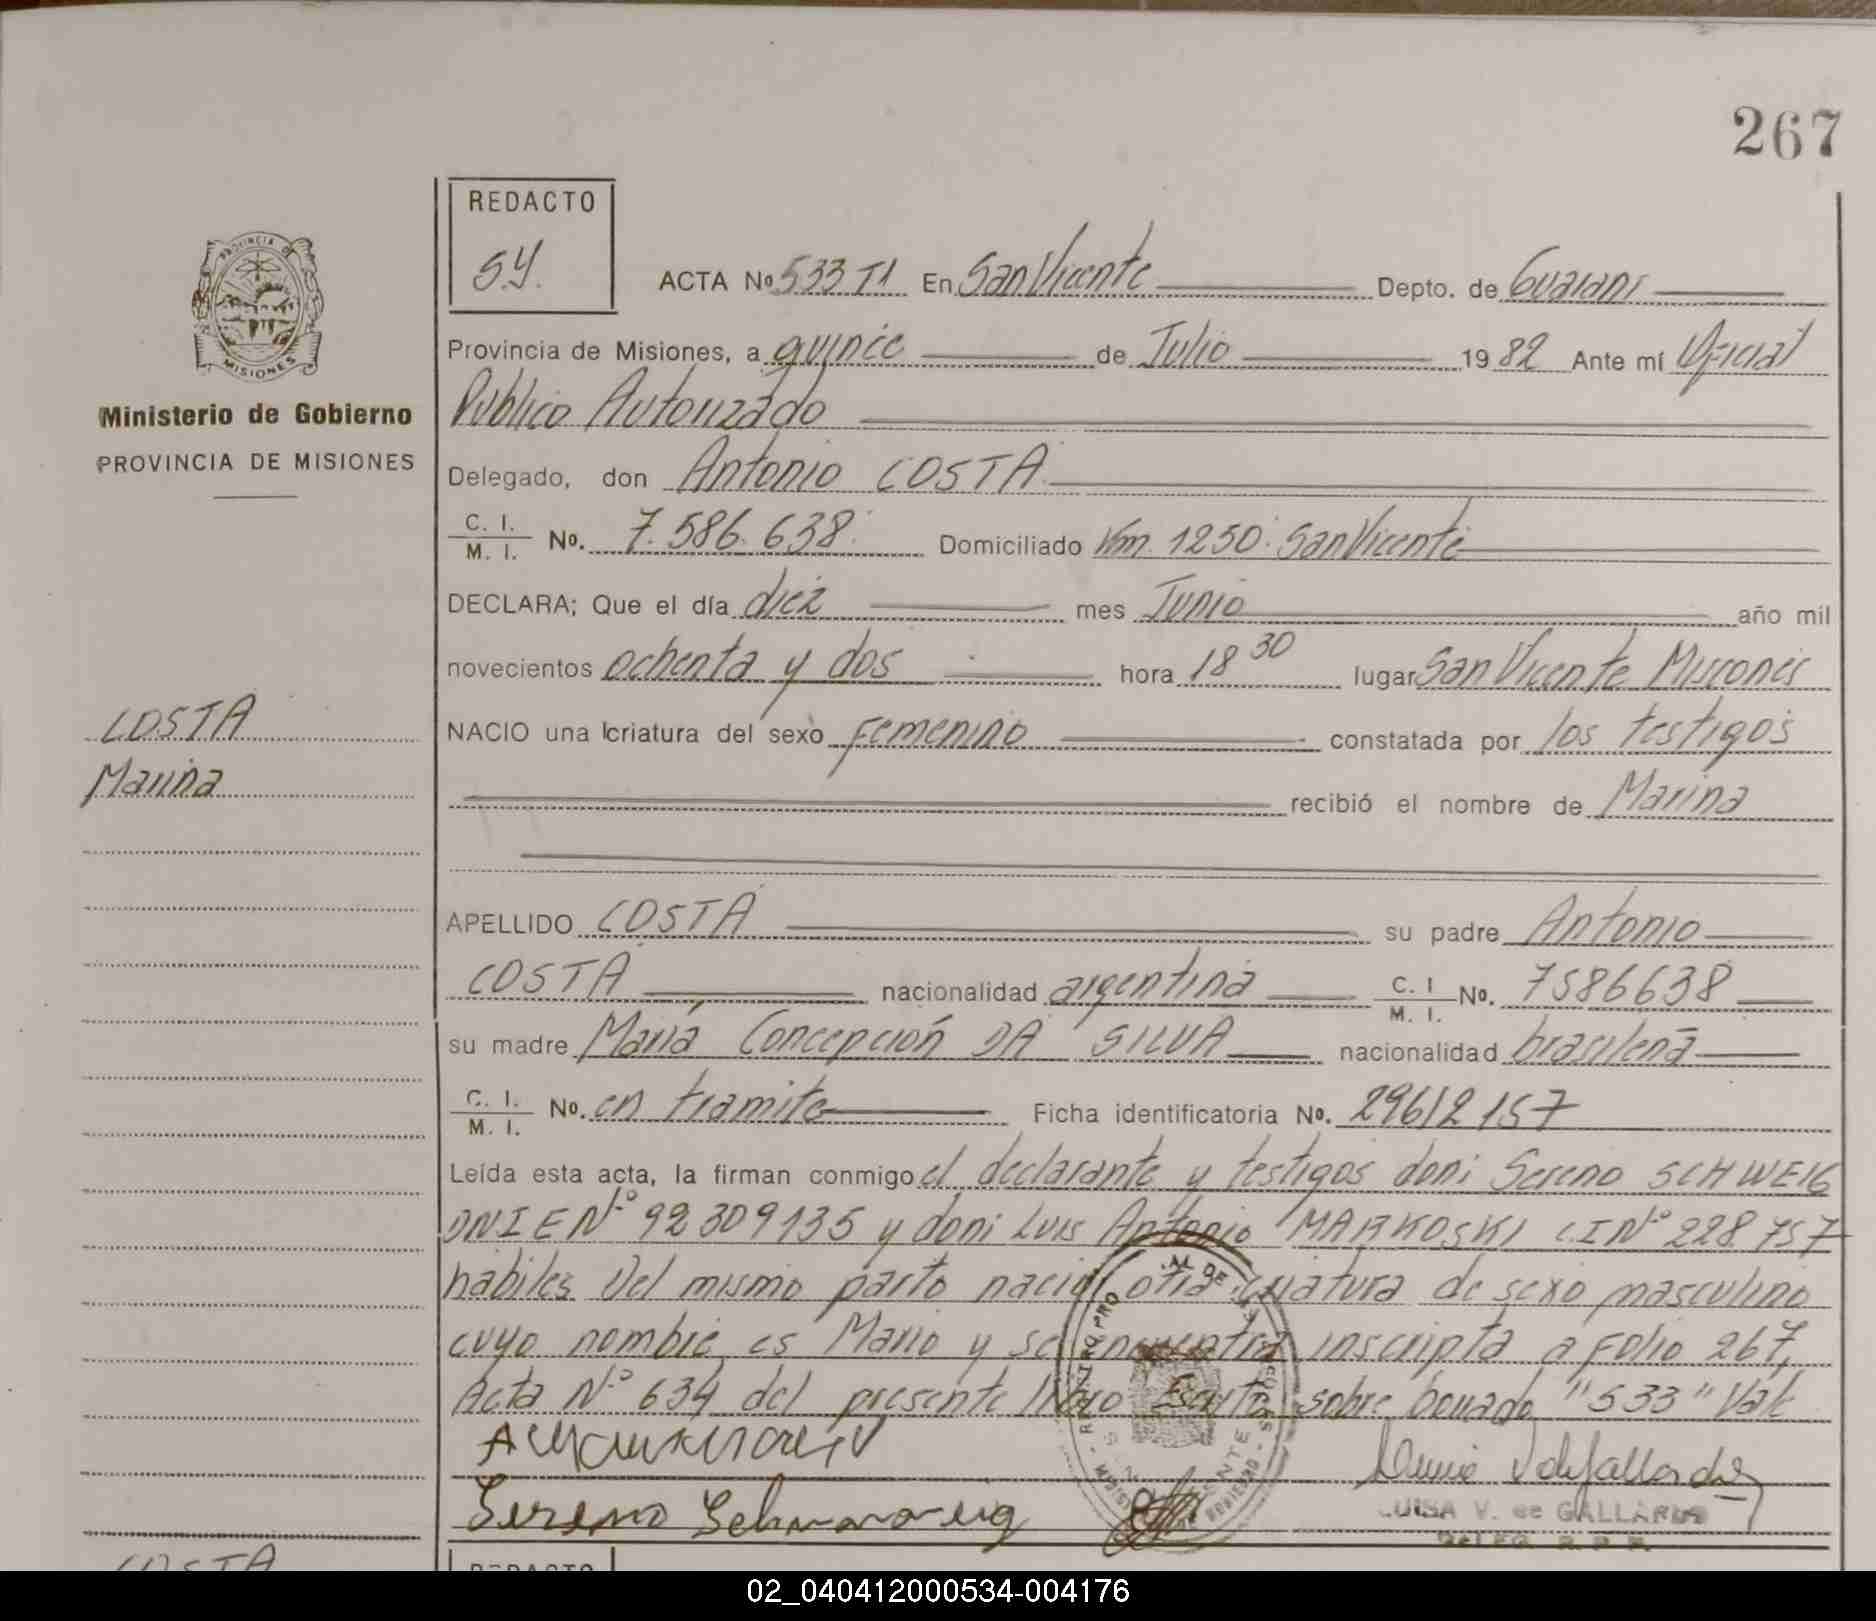 267
REDACTO
S.Y.
ACTA Nº 533 T1 En San Vicente Depto. de Guarani
Provincia de Misiones, a quince de Julio 1982 Ante mí Oficial
Publico Autorizado
Delegado, don Antonio COSTA
C. I. M. I. Nº. 7.586.638. Domiciliado Km. 1250. San Vicente
DECLARA; Que el día diez mes Junio año mil
novecientos ochenta y dos hora 18 30 lugar San Vicente Misiones
NACIO una criatura del sexo Femenino constatada por los testigos
recibió el nombre de Marina
APELLIDO COSTA su padre Antonio
COSTA nacionalidad argentina C. I M. I. Nº. 7586638
su madre María Concepción DA SILVA nacionalidad brasileña
C. I. M. I. Nº. en tramite Ficha identificatoria Nº. 296/2157
Leída esta acta, la firman conmigo el declarante y testigos don: Sereno SCHWEIG
DNI E Nº 92309135 y don: Luis Antonio MARKOSKI C.I Nº 228757
habiles Del mismo parto nació otra criatura de sexo masculino
cuyo nombre es Mario y se encuentra inscripta a Folio 267,
Acta Nº 634 del presente libro Escrito sobre borrado "533" Vale
Sereno Schwareig
LUISA V. de GALLARDO
DELEG. R. P. P.
PROVINCIA DE
MISIONES
Ministerio de Gobierno
PROVINCIA DE MISIONES
COSTA
Marina
COSTA
REDACTO
02_040412000534-004176